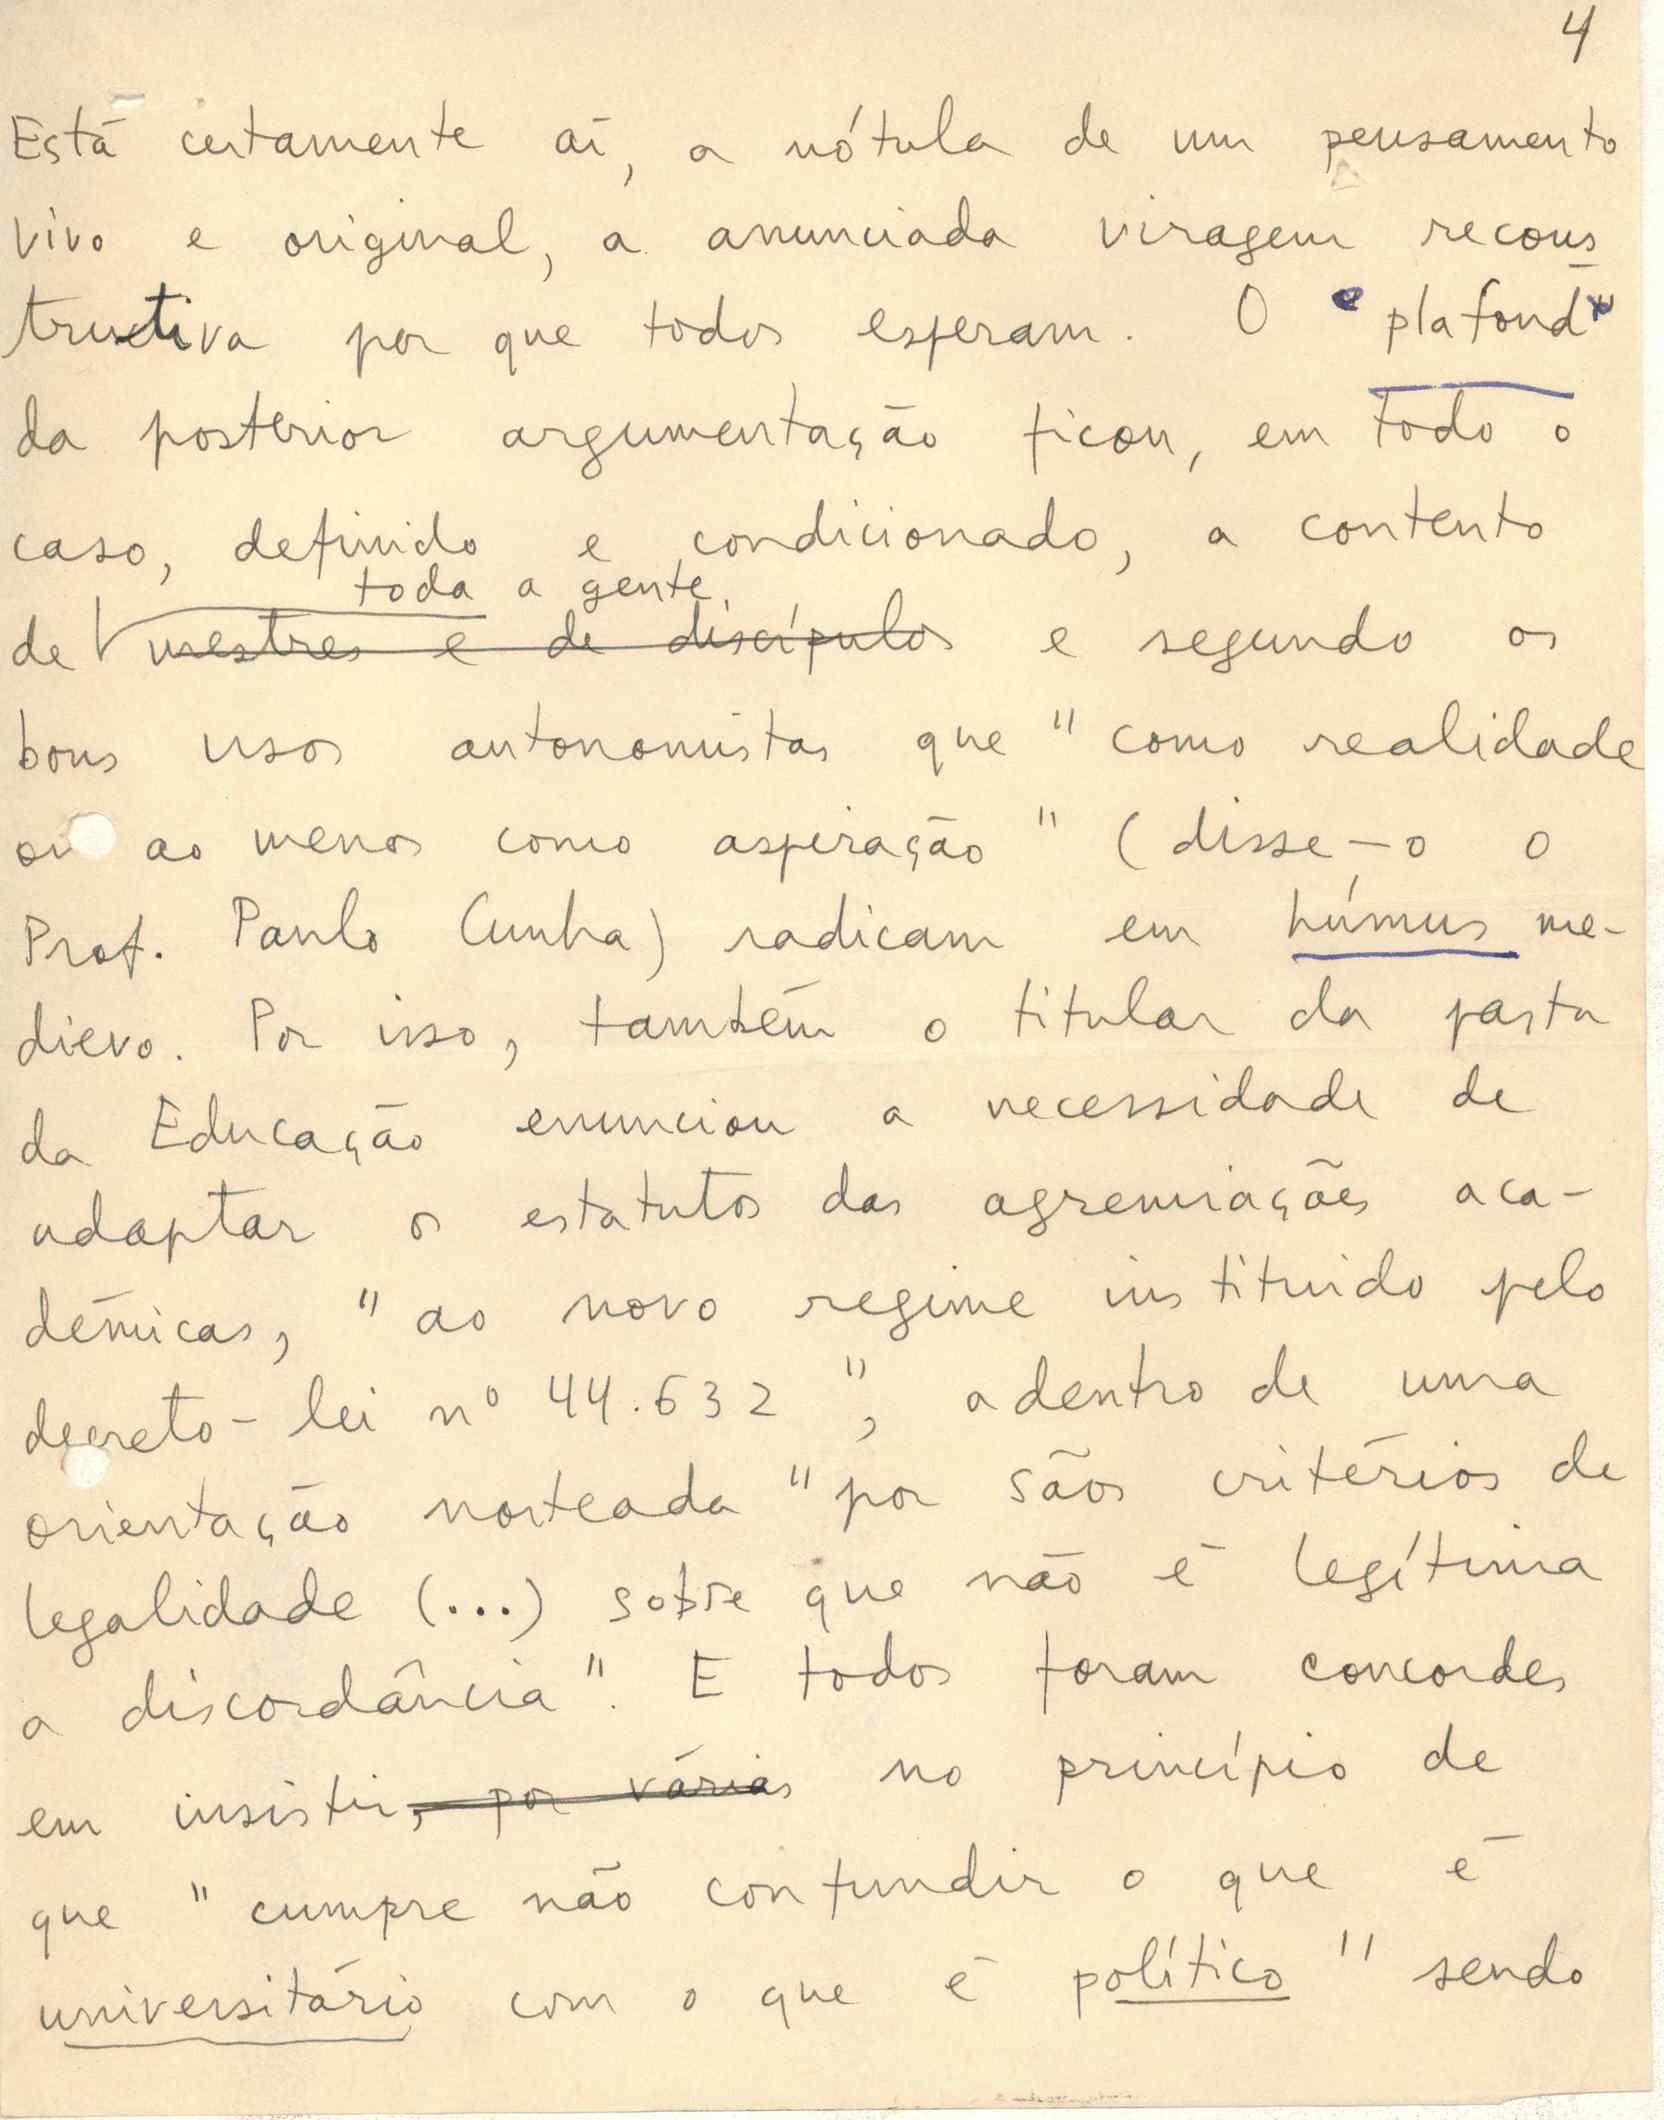 4
Está certamente aí, a nótula de um pensamento
vivo e original, a anunciada viragem recons
tructiva por que todos esperam. O "plafond"
da posterior argumentação ficou, em todo o
caso, definido e condicionado, a contento
toda a gente,
de mestres e de discípulos e segundo os
bons usos autonomistas que "como realidade
ou ao menos como aspiração" (disse-o o
Prof. Paulo Cunha) radicam em húmus me-
dievo. Por isso, também o titular da pasta
da Educação enunciou a necessidade de
adaptar os estatutos das agremiações aca-
démicas, "ao novo regime instituido pelo
decreto-lei nº 44.632", adentro de uma
orientação norteada "por sãos critérios de
legalidade (...) sobre que não é legítima
a discordância". E todos foram concordes
em insistir, por várias no princípio de
que "cumpre não confundir o que é
universitário com o que é político" sendo